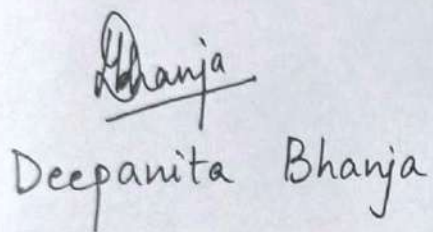 Bhanja
Deepanita Bhanja